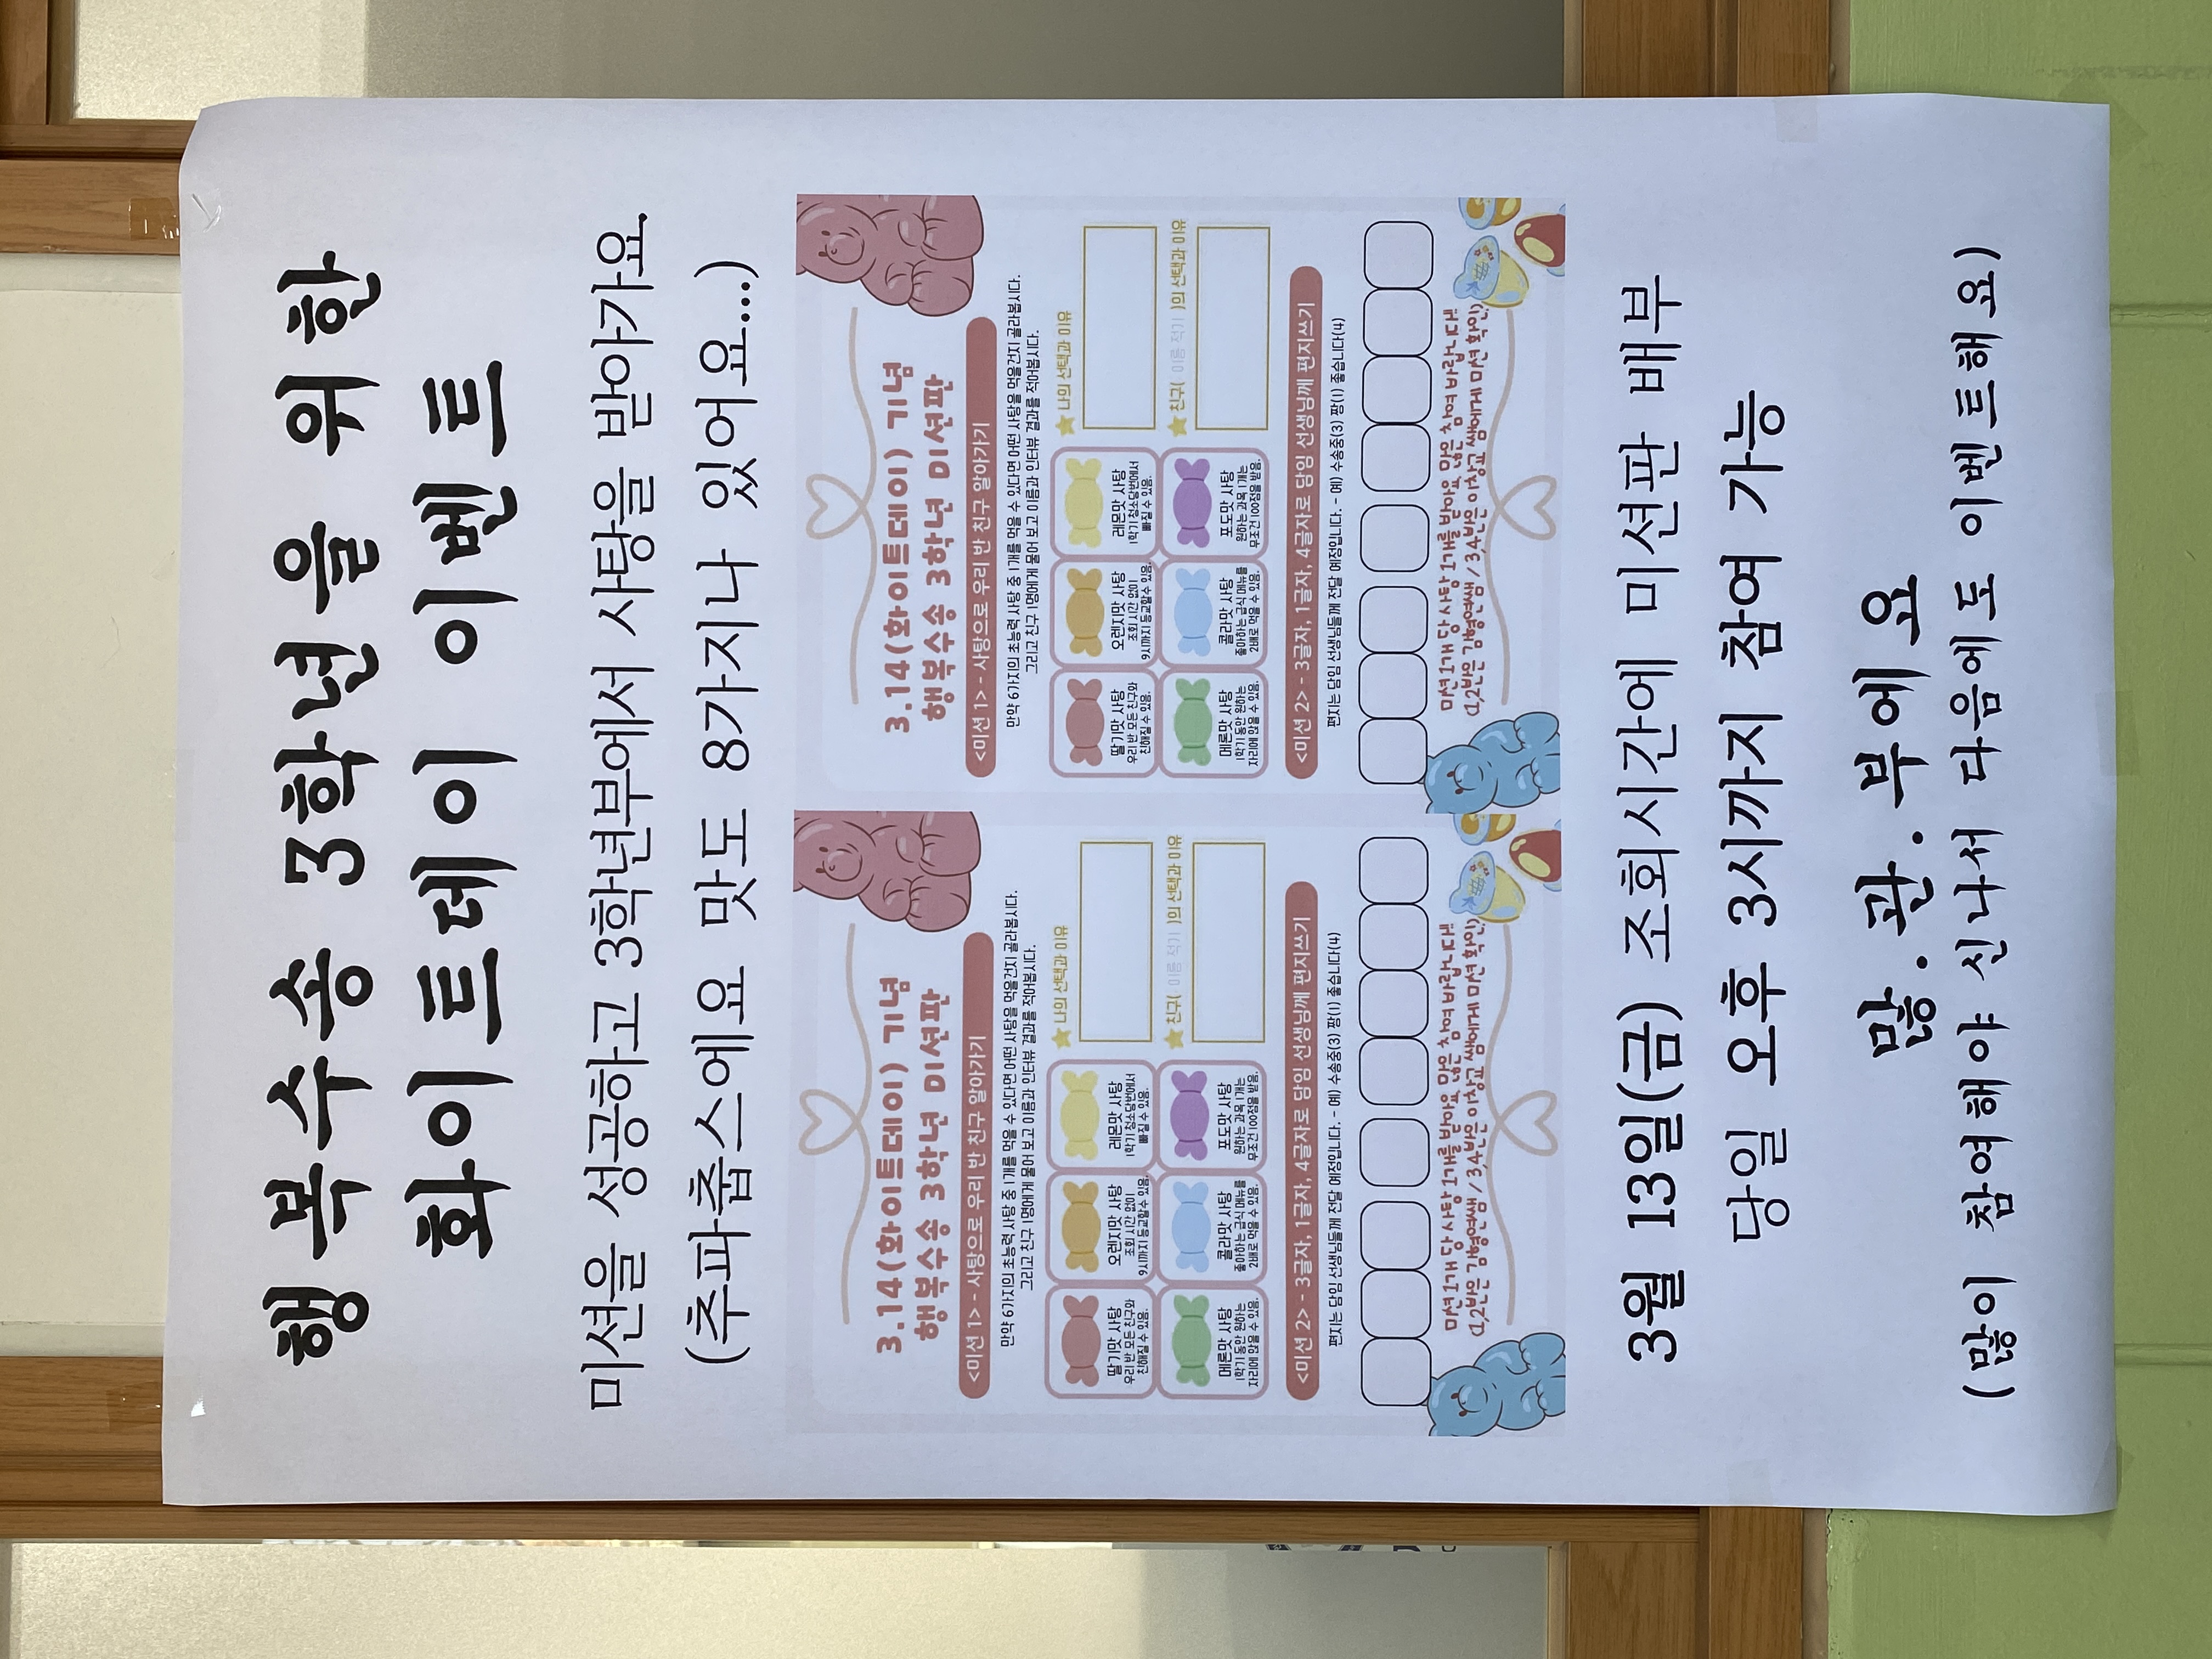 행복수송 3학년을 위한
화이트데이 이벤트
미션을 성공하고 3학년부에서 사탕을 받아가요.
(추파춥스에요 맛도 8가지나 있어요...)
3.14(화이트데이) 기념
행복수송 3학년 미션판
<미션 1> - 사탕으로 우리 반 친구 알아가기
만약 6가지의 초능력 사탕 중 1개를 먹을 수 있다면 어떤 사탕을 먹을건지 골라봅시다.
그리고 친구 1명에게 물어 보고 이름과 인터뷰 결과를 적어봅시다.
딸기맛 사탕
우리 반 모든 친구와
친해질 수 있음.
오렌지맛 사탕
조회 시간 없이
9시까지 등교할수 있음.
레몬맛 사탕
1학기 청소당번에서
빠질 수 있음.
메론맛 사탕
1학기 동안 원하는
자리에 앉을 수 있음.
콜라맛 사탕
좋아하는 급식 메뉴를
2배로 먹을 수 있음.
포도맛 사탕
원하는 과목 1개는
무조건 100점을 받음.
나의 선택과 이유
친구( 이름 적기 )의 선택과 이유
<미션 2> - 3글자, 1글자, 4글자로 담임 선생님께 편지쓰기
편지는 담임 선생님들께 전달 예정입니다. - 예) 수송중(3) 짱(1) 좋습니다(4)
미션 1개 당 사탕 1개를 받아요. 많은 참여 바랍니다!
(1,2반은 김형연쌤 / 3,4반은 이창교 쌤에게 미션 확인)
3.14(화이트데이) 기념
행복수송 3학년 미션판
<미션 1> - 사탕으로 우리 반 친구 알아가기
만약 6가지의 초능력 사탕 중 1개를 먹을 수 있다면 어떤 사탕을 먹을건지 골라봅시다.
그리고 친구 1명에게 물어 보고 이름과 인터뷰 결과를 적어봅시다.
딸기맛 사탕
우리 반 모든 친구와
친해질 수 있음.
오렌지맛 사탕
조회 시간 없이
9시까지 등교할수 있음.
레몬맛 사탕
1학기 청소당번에서
빠질 수 있음.
메론맛 사탕
1학기 동안 원하는
자리에 앉을 수 있음.
콜라맛 사탕
좋아하는 급식 메뉴를
2배로 먹을 수 있음.
포도맛 사탕
원하는 과목 1개는
무조건 100점을 받음.
나의 선택과 이유
친구( 이름 적기 )의 선택과 이유
<미션 2> - 3글자, 1글자, 4글자로 담임 선생님께 편지쓰기
편지는 담임 선생님들께 전달 예정입니다. - 예) 수송중(3) 짱(1) 좋습니다(4)
미션 1개 당 사탕 1개를 받아요. 많은 참여 바랍니다!
(1,2반은 김형연쌤 / 3,4반은 이창교 쌤에게 미션 확인)
3월 13일(금) 조회시간에 미션판 배부
당일 오후 3시까지 참여 가능
많.관.부에요
(많이 참여해야 신나서 다음에도 이벤트해요)